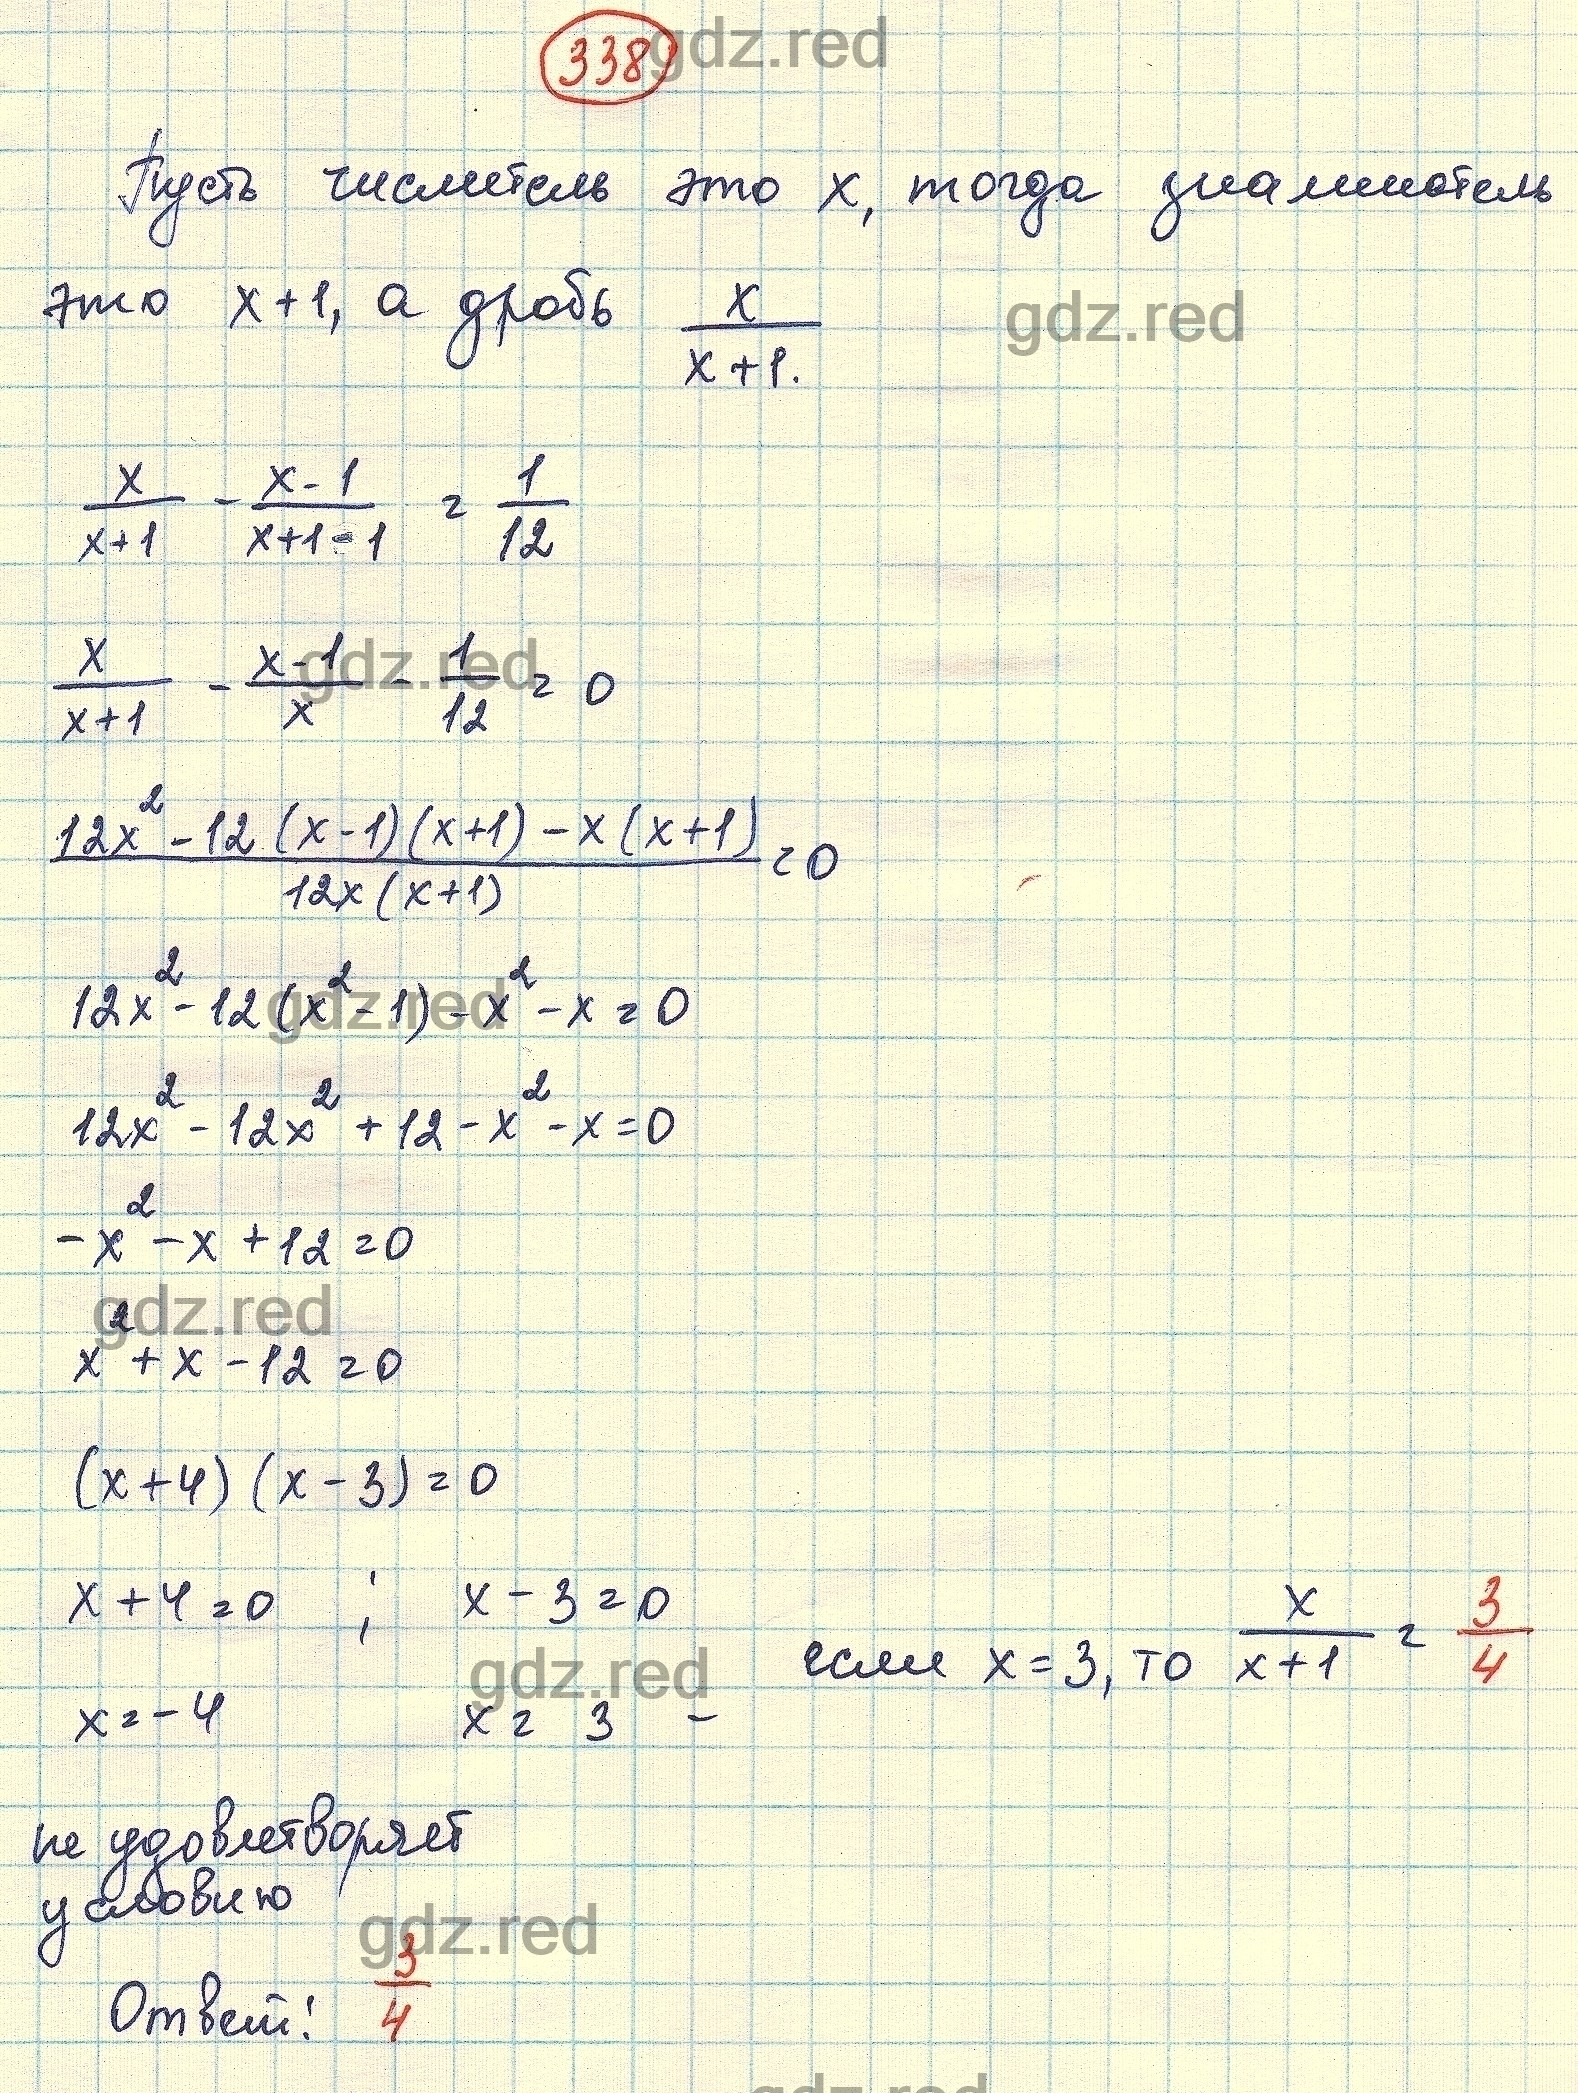 338 gdz.red
Пусть числитель это x, тогда знаминатель
это x+1, а дробь x/(x+1). gdz.red
x/(x+1) - (x-1)/(x+1-1) = 1/12
x/(x+1) - (x-1)/x - 1/12 = 0 gdz.red
(12x² - 12(x-1)(x+1) - x(x+1))/(12x(x+1)) = 0
12x² - 12(x² - 1) - x² - x = 0 gdz.red
12x² - 12x² + 12 - x² - x = 0
-x² - x + 12 = 0
gdz.red
x² + x - 12 = 0
(x+4)(x-3) = 0
x+4=0 ; x-3=0
x=-4 x = 3 - если x=3, то x/(x+1) = 3/4
gdz.red
не удовлетворяет
условию
gdz.red
Ответ: 3/4
gdz.red